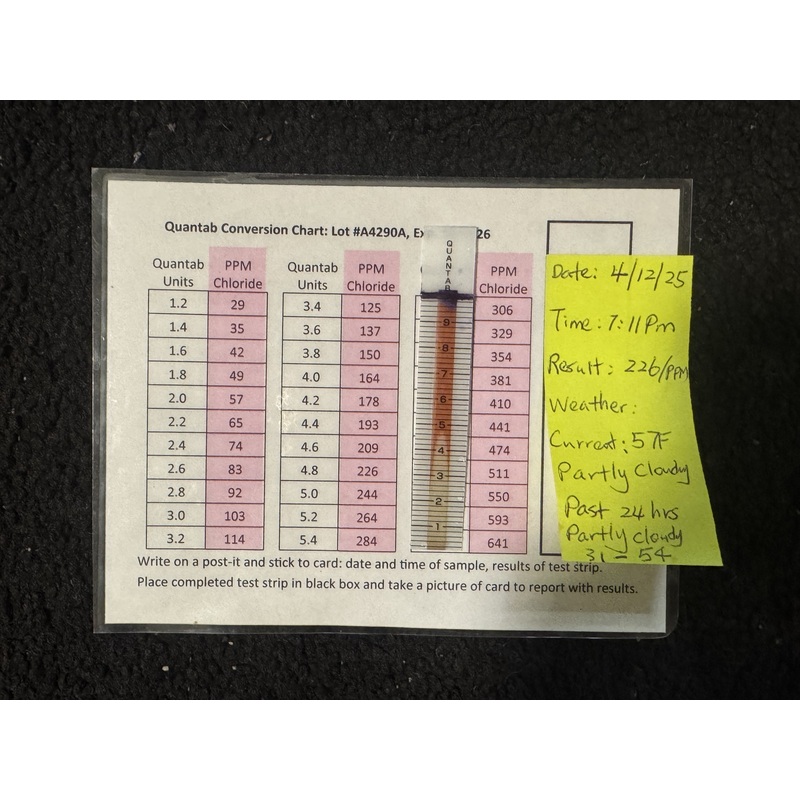 Quantab Conversion Chart: Lot #A4290A, Ex 26
Quantab Units PPM Chloride
1.2 29
1.4 35
1.6 42
1.8 49
2.0 57
2.2 65
2.4 74
2.6 83
2.8 92
3.0 103
3.2 114
Quantab Units PPM Chloride
3.4 125
3.6 137
3.8 150
4.0 164
4.2 178
4.4 193
4.6 209
4.8 226
5.0 244
5.2 264
5.4 284
QUANTAB
9
8
7
6
5
4
3
2
1
PPM Chloride
306
329
354
381
410
441
474
511
550
593
641
Date: 4/12/25
Time: 7:11Pm
Result: 226/PPM
Weather:
Current: 57F
Partly Cloudy
Past 24 hrs
Partly cloudy
31 - 54
Write on a post-it and stick to card: date and time of sample, results of test strip.
Place completed test strip in black box and take a picture of card to report with results.